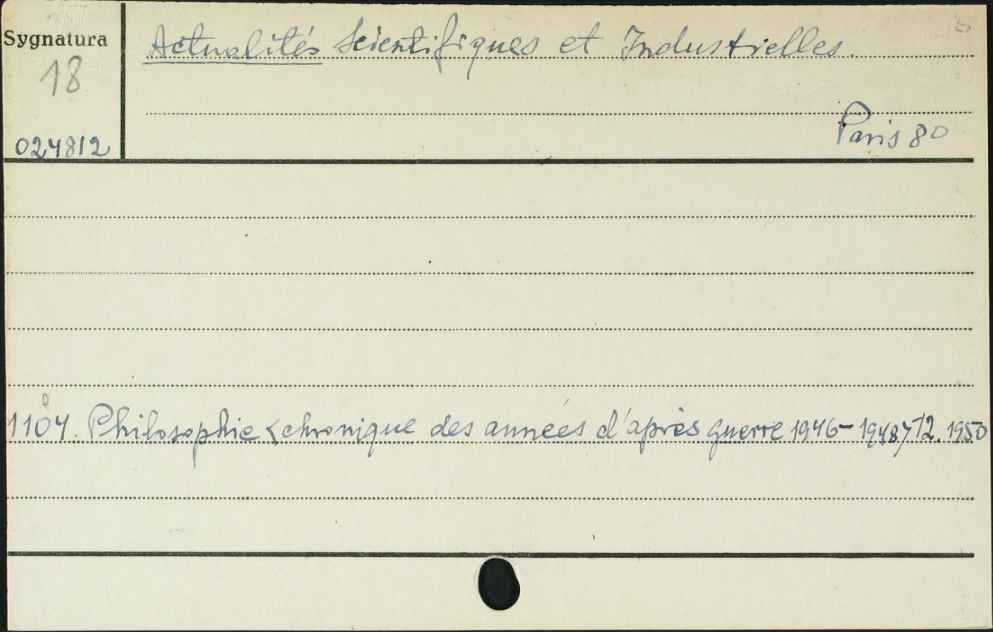 Sygnatura
18
024812
Actualités Scientifiques et Industrielles.
Paris 8°
1104. Philosophie <chronique des années d'après guerre 1946-1948> 12. 1950